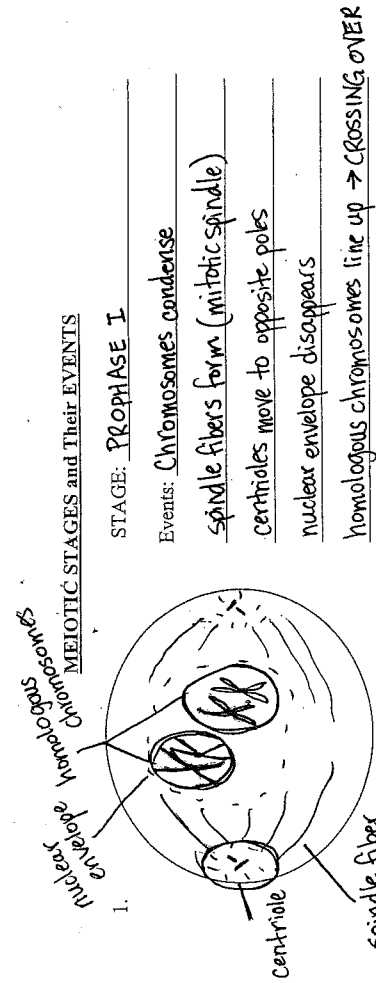 MEIOTIC STAGES and Their EVENTS
1.
nuclear
envelope
homologous
chromosomes
centriole
spindle fiber
STAGE: PROPHASE I
Events: Chromosomes condense
spindle fibers form (mitotic spindle)
centrioles move to opposite poles
nuclear envelope disappears
homologous chromosomes line up → CROSSING OVER